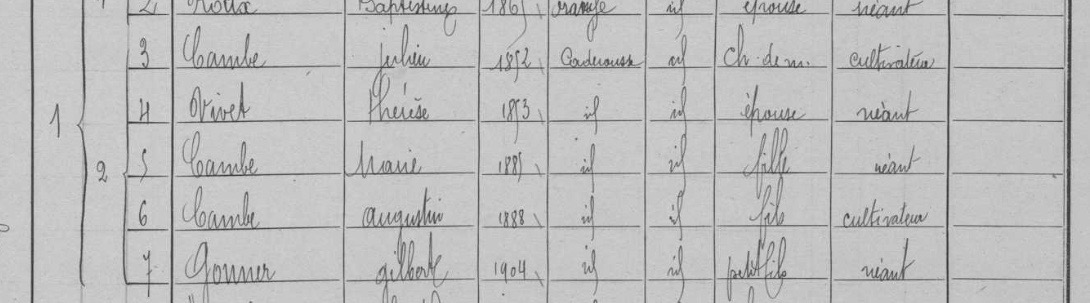 2 Roux Baptistine 1865 Orange id épouse néant
3 Cambe julien 1852 Caderousse id ch. de m. cultivateur
1 4 Vivet thérèse 1853 id id épouse néant
2 5 Cambe Marie 1885 id id fille néant
6 Cambe augustin 1888 id id fils cultivateur
7 Gonner gilbert 1904 id id petit fils néant